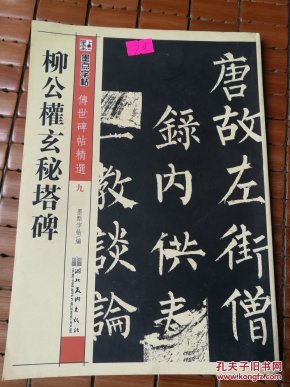 墨点字帖
傳世碑帖精選 九
柳公權玄秘塔碑
墨點字帖編
湖北美術出版社
唐故左街僧
錄内供表
一教談論
孔夫子旧书网